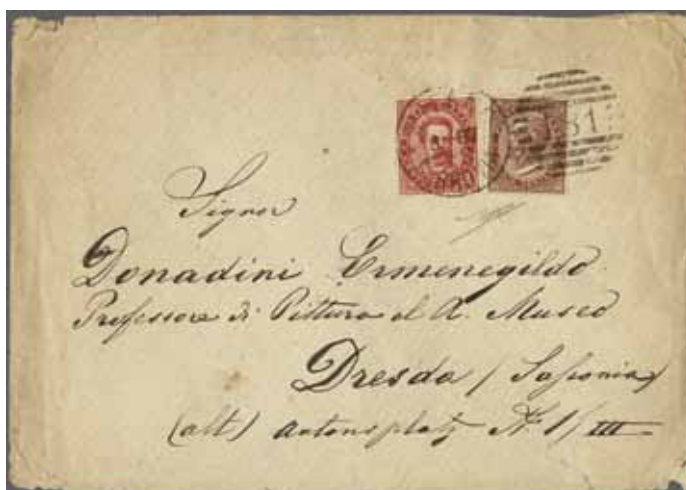 31
Signor
Donadini Ermenegildo
Professore di Pittura al R. Museo
Dresda / Sassonia /
(alt) Antonsplatz N° 1/III